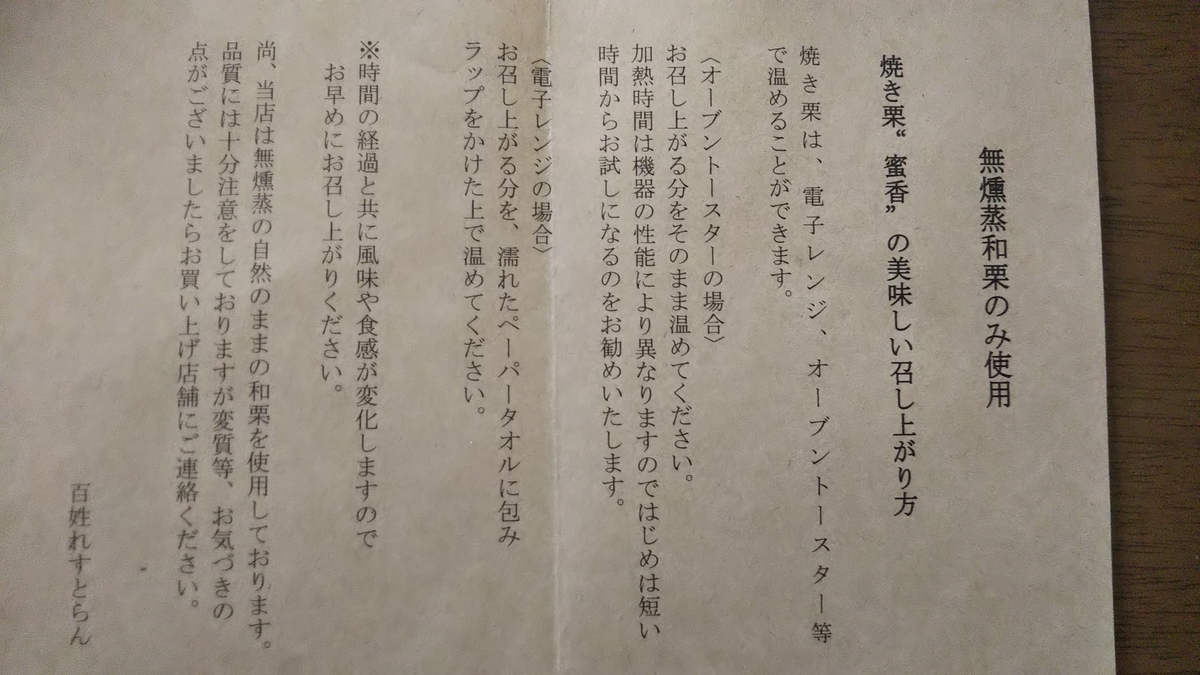 無燻蒸和栗のみ使用
焼き栗“蜜香”の美味しい召し上がり方
焼き栗は、電子レンジ、オーブントースター等
で温めることができます。
〈オーブントースターの場合〉
お召し上がる分をそのまま温めてください。
加熱時間は機器の性能により異なりますのではじめは短い
時間からお試しになるのをお勧めいたします。
〈電子レンジの場合〉
お召し上がる分を、濡れたペーパータオルに包み
ラップをかけた上で温めてください。
※時間の経過と共に風味や食感が変化しますので
お早めにお召し上がりください。
尚、当店は無燻蒸の自然のままの和栗を使用しております。
品質には十分注意をしておりますが変質等、お気づきの
点がございましたらお買い上げ店舗にご連絡ください。
百姓れすとらん